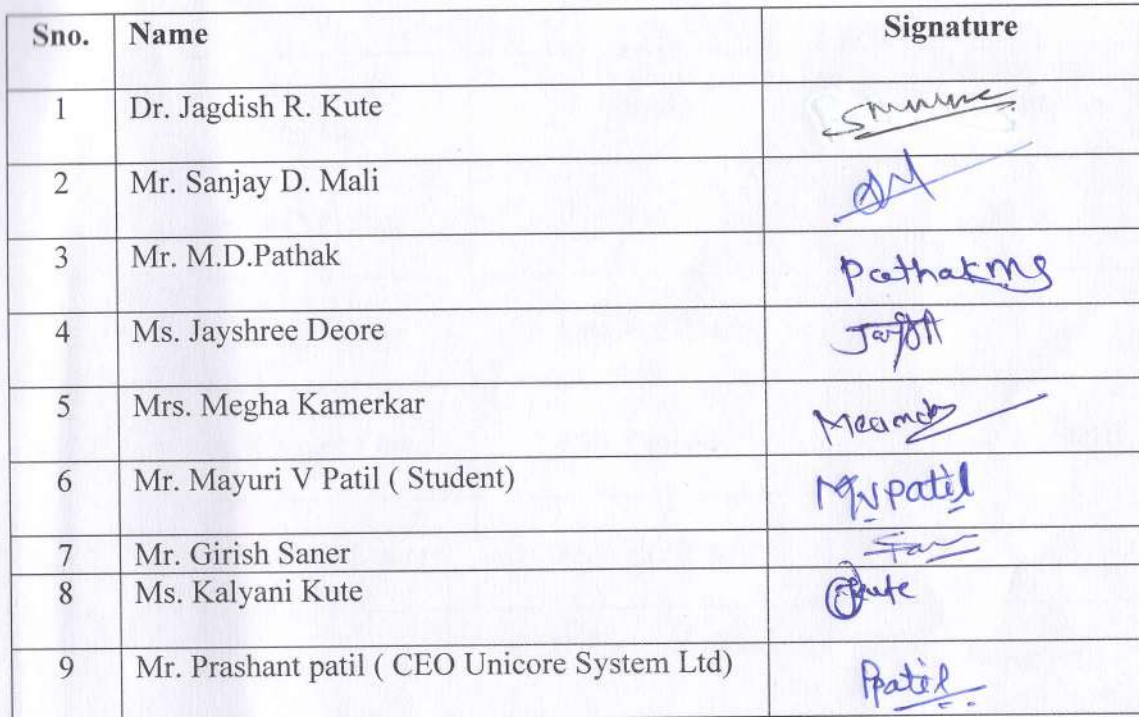 Sno. Name Signature
1 Dr. Jagdish R. Kute
2 Mr. Sanjay D. Mali
3 Mr. M.D.Pathak Pathak
4 Ms. Jayshree Deore
5 Mrs. Megha Kamerkar
6 Mr. Mayuri V Patil ( Student) MVPatil
7 Mr. Girish Saner
8 Ms. Kalyani Kute Kute
9 Mr. Prashant patil ( CEO Unicore System Ltd) Ppatil